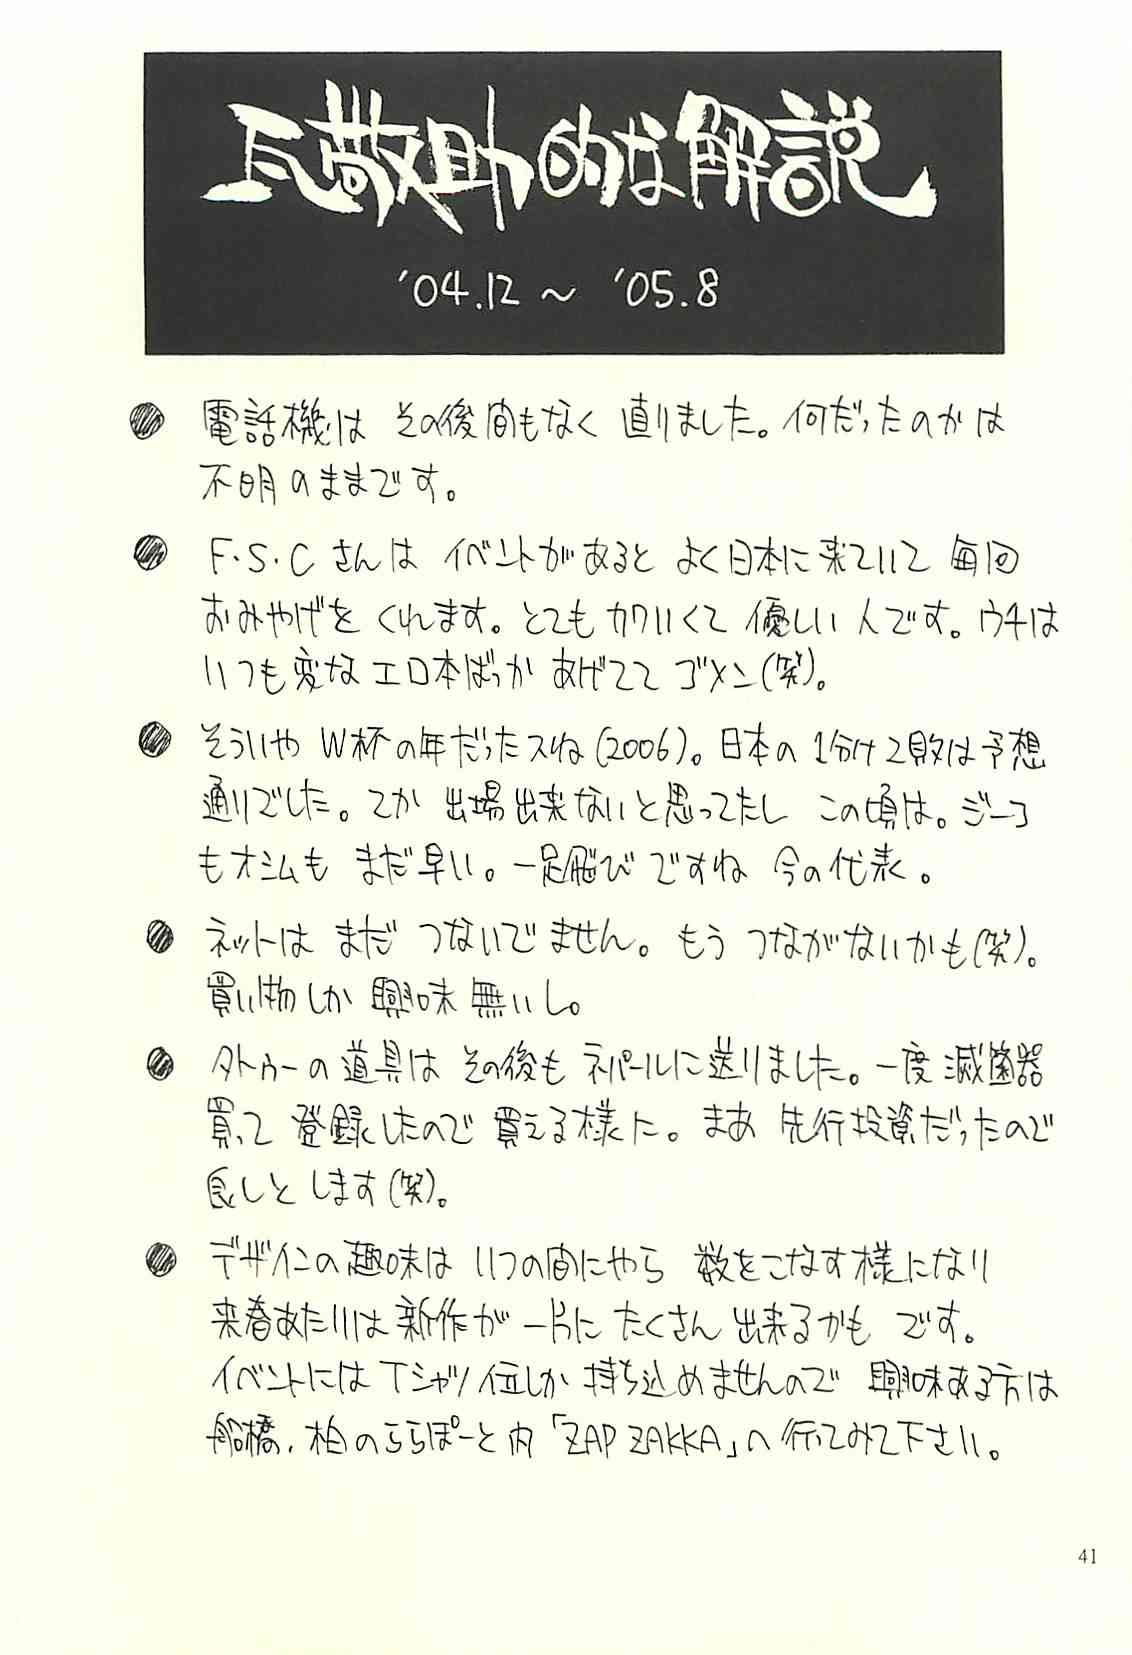 瓦敬助的な解説
'04.12 〜 '05.8
電話機は その後間もなく 直りました。何だったのかは
不明のままです。
F・S・Cさんは イベントがあると よく日本に来ていて 毎回
おみやげを くれます。とても カワいくて 優しい 人です。ウチは
いつも 変な エロ本ばっか あげてて ゴメン(笑)。
そういや W杯の年だったスね(2006)。日本の 1分け2敗は予想
通りでした。てか 出場出来ないと思ってたし この頃は。ジーコ
もオシムも まだ早い。一足飛び ですね 今の代表。
ネットは まだ つないでません。もう つながないかも(笑)。
買い物しか 興味 無いし。
タトゥーの道具は その後も ネパールに送りました。一度 滅菌器
買って 登録したので 買える様だ。まあ 先行投資だったので
良しと します(笑)。
デザインの趣味は いつの間にやら 数をこなす様になり
来春あたりは新作が 一片に たくさん 出来るかも です。
イベントには Tシャツ位しか 持ち込めませんので 興味ある方は
船橋、柏のららぽーと内「ZAP ZAKKA」へ 行ってみて下さい。
41